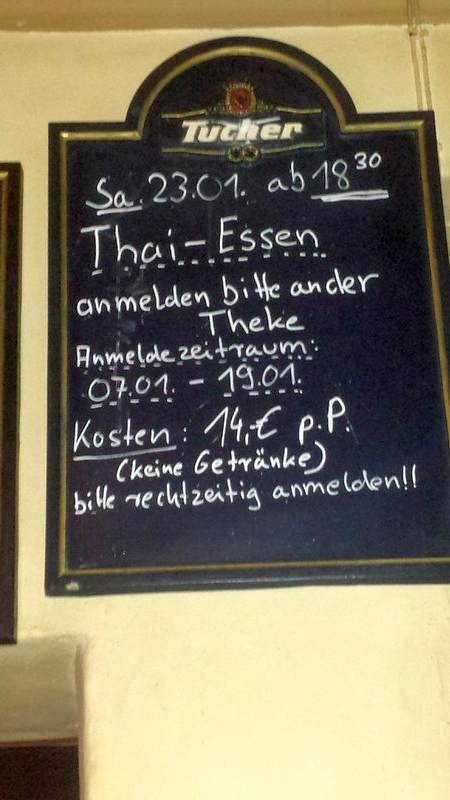 Tucher
Sa. 23.01. ab 18 30
Thai-Essen
anmelden bitte an der
Theke
Anmeldezeitraum:
07.01. - 19.01.
Kosten: 14,-€ p.P.
(keine Getränke)
bitte rechtzeitig anmelden!!